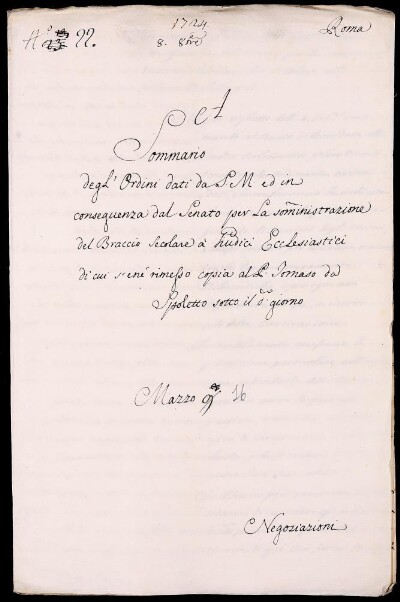 1724
Roma
N.º 22.
8. 8bre
Sommario
degl' Ordini dati da S M ed in
conseguenza dal Senato per La somministrazione
del Braccio Secolare à Giudici Ecclesiastici
di cui s'en'è rimesso copia al P. Tomaso da
Spoletto sotto il dº giorno
Mazzo 9 16
Negoziazioni